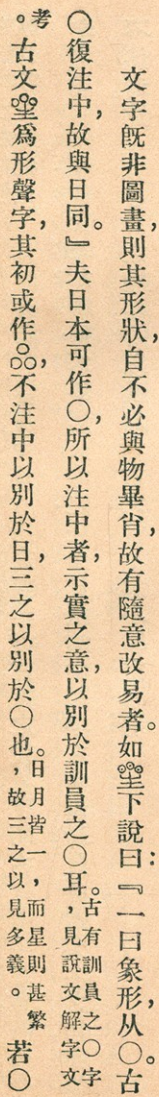 文字旣非圖畫，則其形狀自不必與物畢肖，故有隨意改易者。如曐下說曰：『一曰象形，从〇。古
〇復注中，故與日同。』夫日本可作〇，所以注中者，示實之意，以別於訓員之〇耳。古有訓員之〇字，見說文解字文
考。古文曐爲形聲字，其初或作〇〇〇，不注中以別於日，三之以別於〇也。日月皆一，而星則甚繁，故三之以見多義。若〇